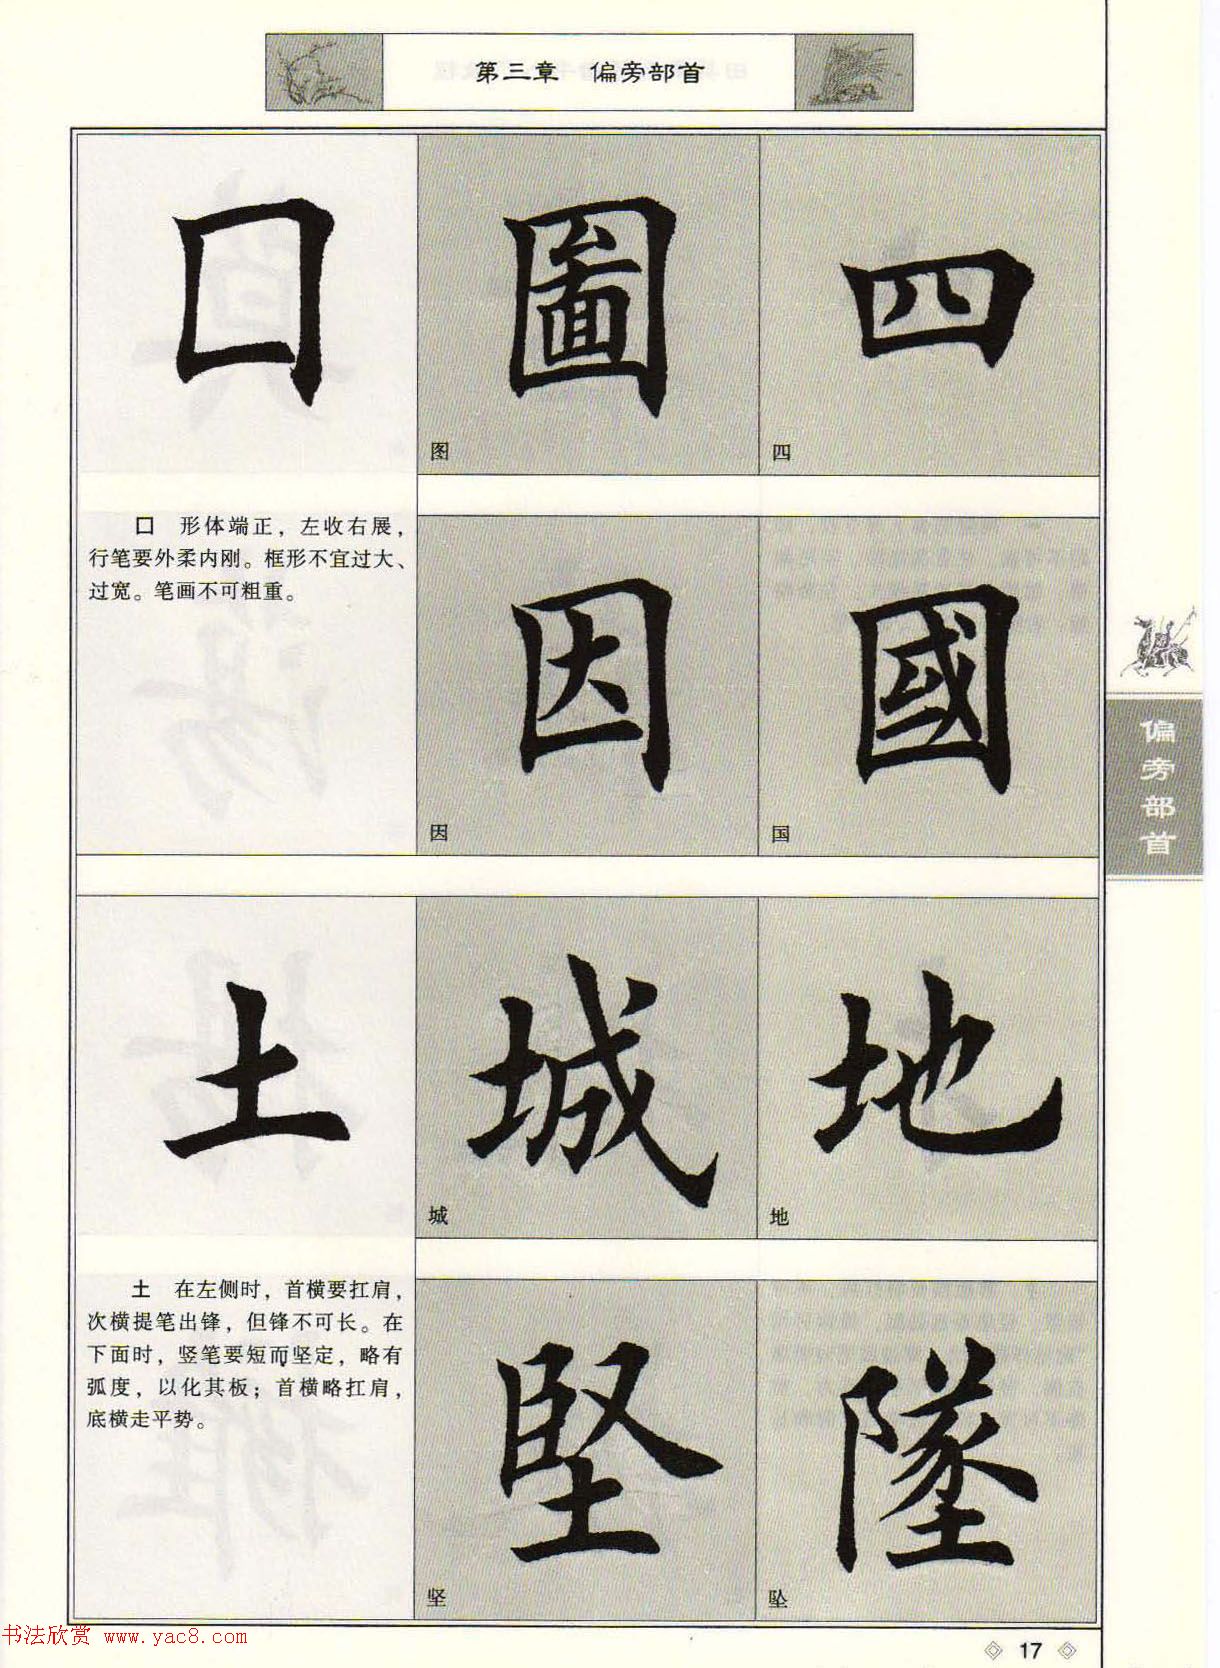 第三章 偏旁部首
囗 圖 四
图 四
囗 形体端正，左收右展，
行笔要外柔内刚。框形不宜过大、
过宽。笔画不可粗重。
因 國
因 国
偏旁部首
土 城 地
城 地
土 在左侧时，首横要扛肩，
次横提笔出锋，但锋不可长。在
下面时，竖笔要短而坚定，略有
弧度，以化其板；首横略扛肩，
底横走平势。
堅 墜
坚 坠
书法欣赏 www.yac8.com
17